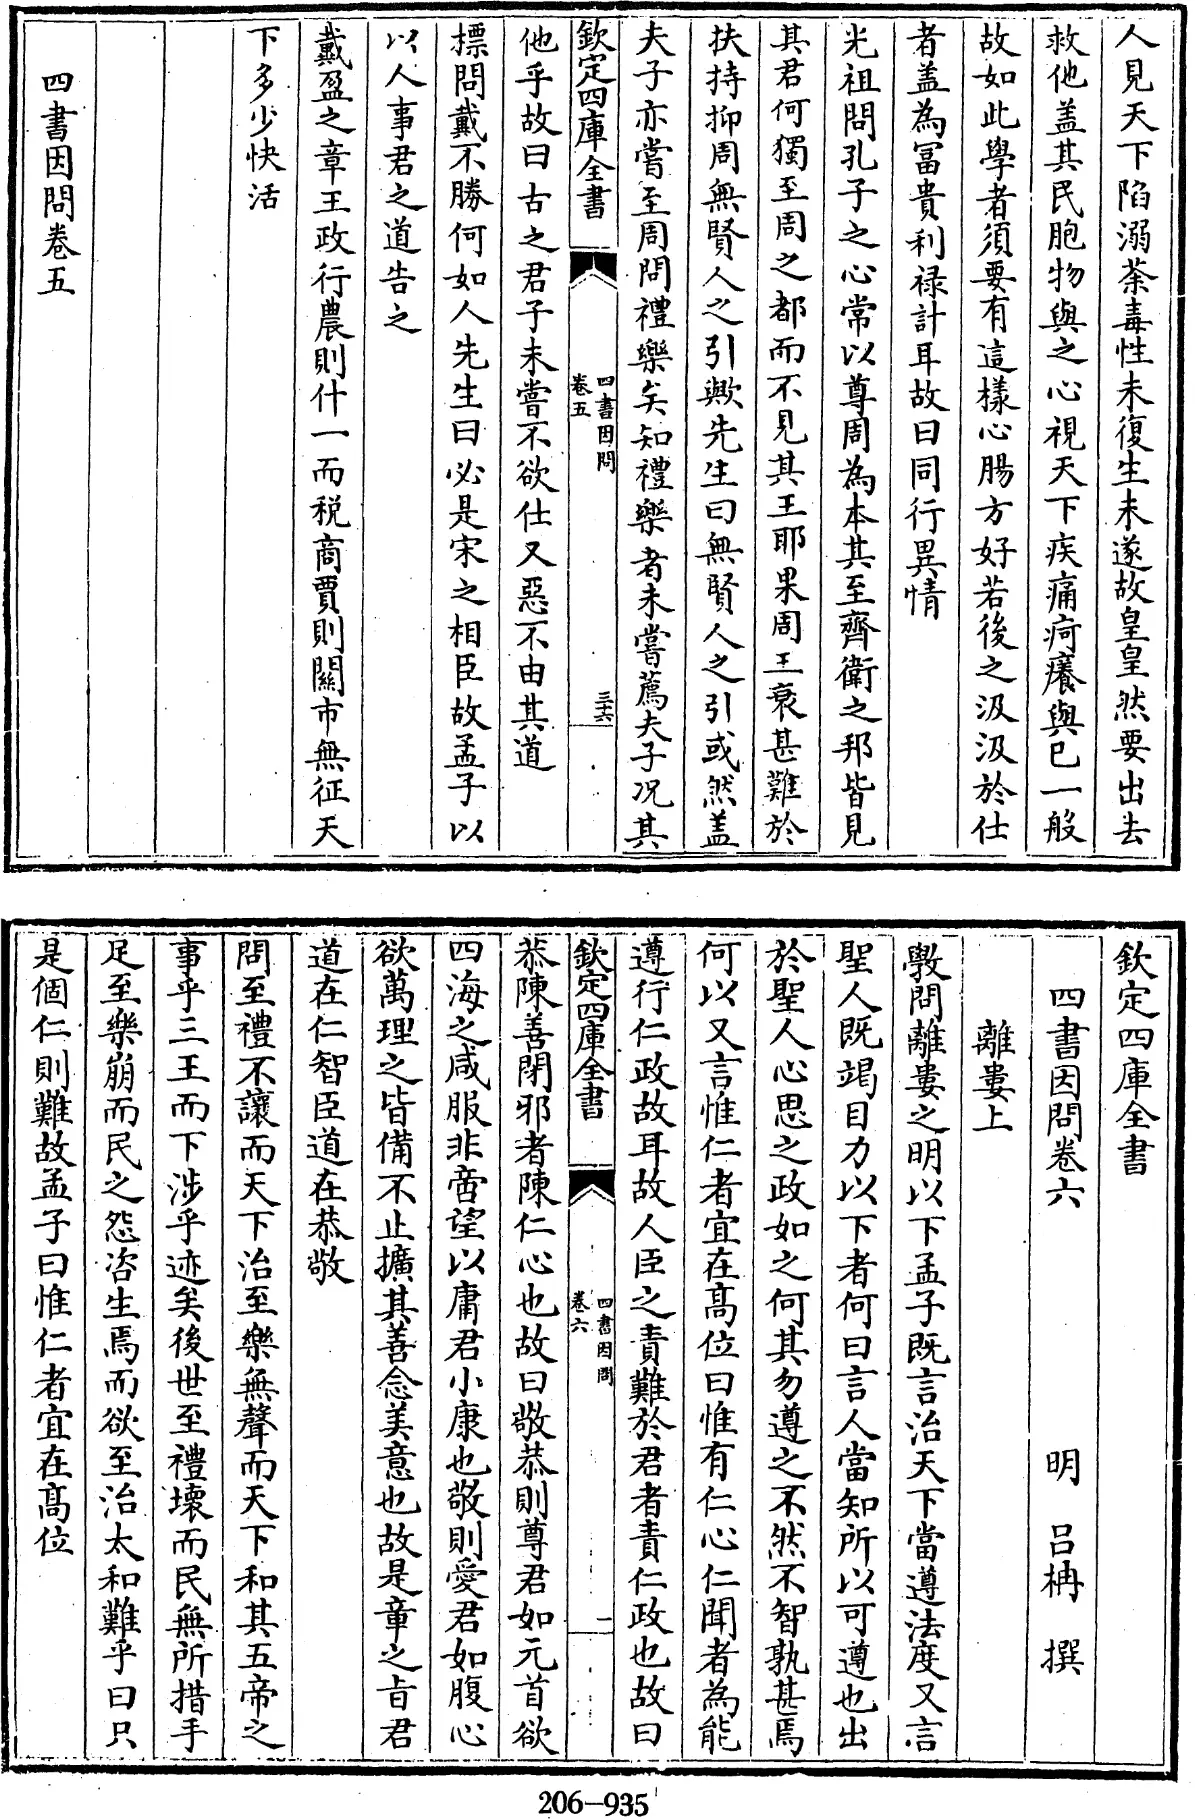 人見天下陷溺荼毒性未復生未遂故皇皇然要出去
救他蓋其民胞物與之心視天下疾痛疴癢與已一般
故如此學者須要有這様心腸方好若後之汲汲於仕
者盖為冨貴利禄計耳故曰同行異情
光祖問孔子之心常以尊周為本其至齊衛之邦皆見
其君何獨至周之都而不見其王耶果周王衰甚難於
扶持抑周無賢人之引歟先生曰無賢人之引或然盖
夫子亦嘗至周問禮樂矣知禮樂者未嘗薦夫子况其
欽定四庫全書
四書因問
卷五
三十六
他乎故曰古之君子未嘗不欲仕又惡不由其道
標問戴不勝何如人先生曰必是宋之相臣故孟子以
以人事君之道告之
戴盈之章王政行農則什一而税商賈則關市無征天
下多少快活
四書因問卷五
欽定四庫全書
四書因問卷六
明 吕柟 撰
離婁上
斆問離婁之明以下孟子既言治天下當遵法度又言
聖人既竭目力以下者何曰言人當知所以可遵也出
於聖人心思之政如之何其勿遵之不然不智孰甚焉
何以又言惟仁者宜在髙位曰惟有仁心仁聞者為能
遵行仁政故耳故人臣之責難於君者責仁政也故曰
欽定四庫全書
四書因問
卷六
一
恭陳善閉邪者陳仁心也故曰敬恭則尊君如元首欲
四海之咸服非啻望以庸君小康也敬則愛君如腹心
欲萬理之皆備不止擴其善念美意也故是章之㫖君
道在仁智臣道在恭敬
問至禮不讓而天下治至樂無聲而天下和其五帝之
事乎三王而下涉乎迹矣後世至禮壞而民無所措手
足至樂崩而民之怨咨生焉而欲至治太和難乎曰只
是個仁則難故孟子曰惟仁者宜在髙位
206-935